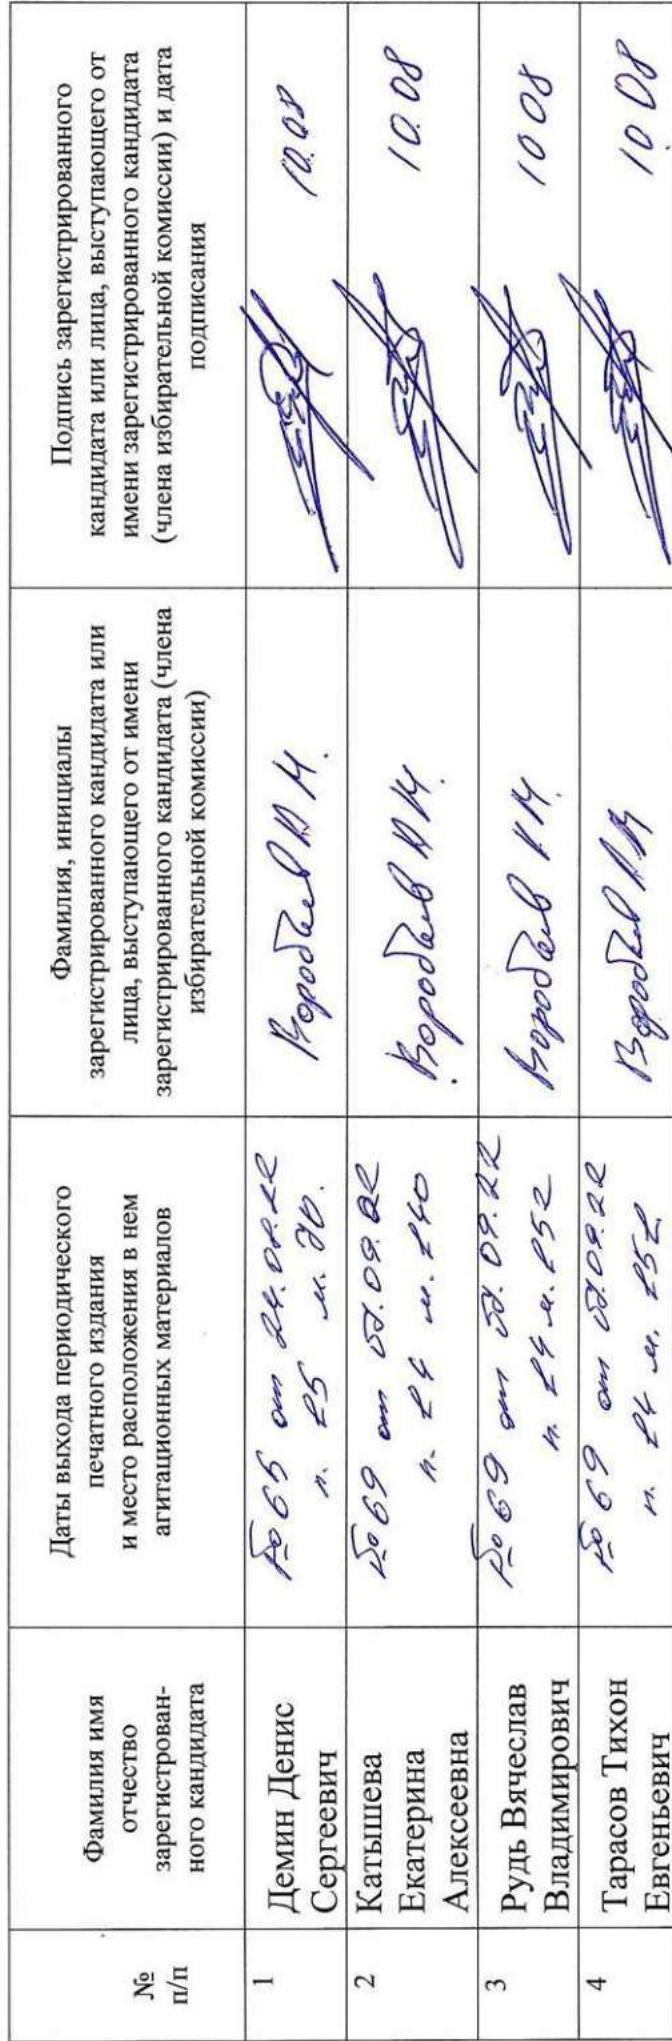 №
п/п
Фамилия имя
отчество
зарегистрирован-
ного кандидата
Даты выхода периодического
печатного издания
и место расположения в нем
агитационных материалов
Фамилия, инициалы
зарегистрированного кандидата или
лица, выступающего от имени
зарегистрированного кандидата (члена
избирательной комиссии)
Подпись зарегистрированного
кандидата или лица, выступающего от
имени зарегистрированного кандидата
(члена избирательной комиссии) и дата
подписания
1
Демин Денис
Сергеевич
№ 65 от 24.08.22
п. 25 м.
Воробьев
10.08
2
Катышева
Екатерина
Алексеевна
№ 69 от 07.09.22
п. 24 м. 240
Воробьев
10.08
3
Рудь Вячеслав
Владимирович
№ 69 от 07.09.22
п. 24 м. 252
Воробьев
10 08
4
Тарасов Тихон
Евгеньевич
№ 69 от 07.09.22
п. 24 м. 252
Воробьев
10 08